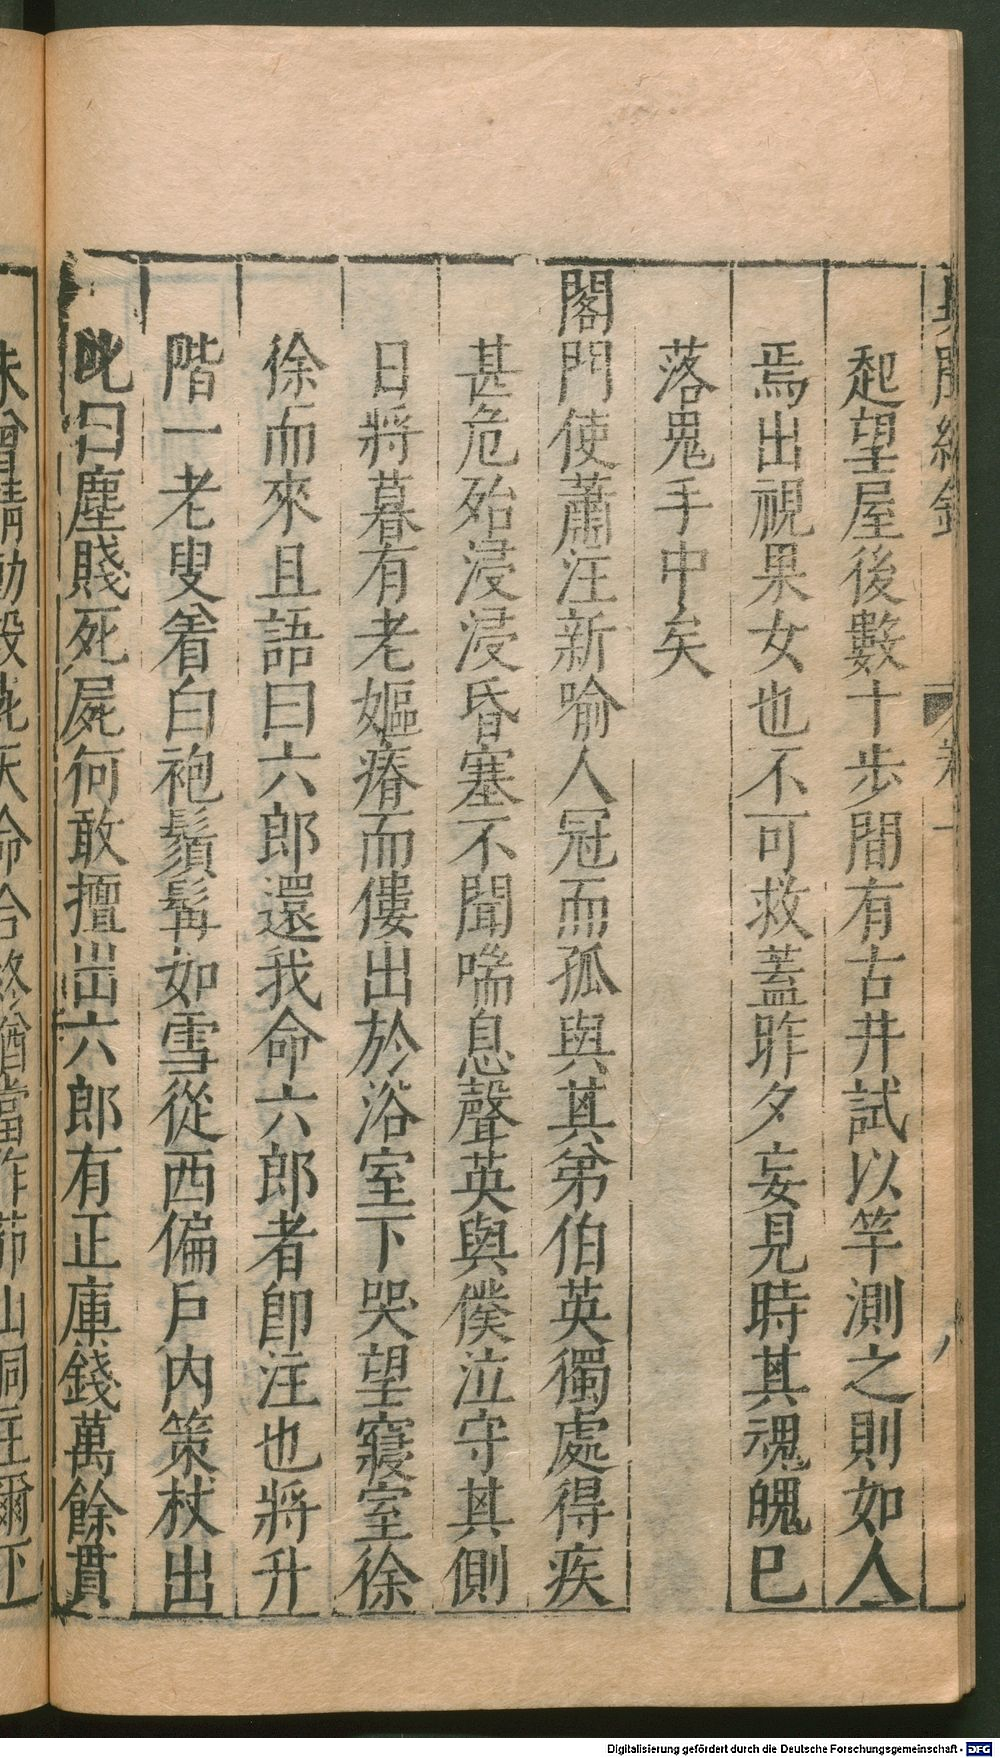 起望屋後數十步間有古井試以竿測之則如人
焉出視果女也不可救蓋昨夕妄見時其魂魄已
落鬼手中矣
閣門使蕭注新喻人冠而孤與其弟伯英獨處得疾
甚危殆浸浸昏塞不聞喘息聲英與僕泣守其側
日將暮有老嫗瘠而僂出於浴室下哭望寢室徐
徐而來且語曰六郎還我命六郎者卽注也將升
階一老叟着白袍鬚髯如雪從西偏戶內策杖出
叱曰塵賤死屍何敢擅出六郎有正庫錢萬餘貫
Digitalisierung gefördert durch die Deutsche Forschungsgemeinschaft - DFG